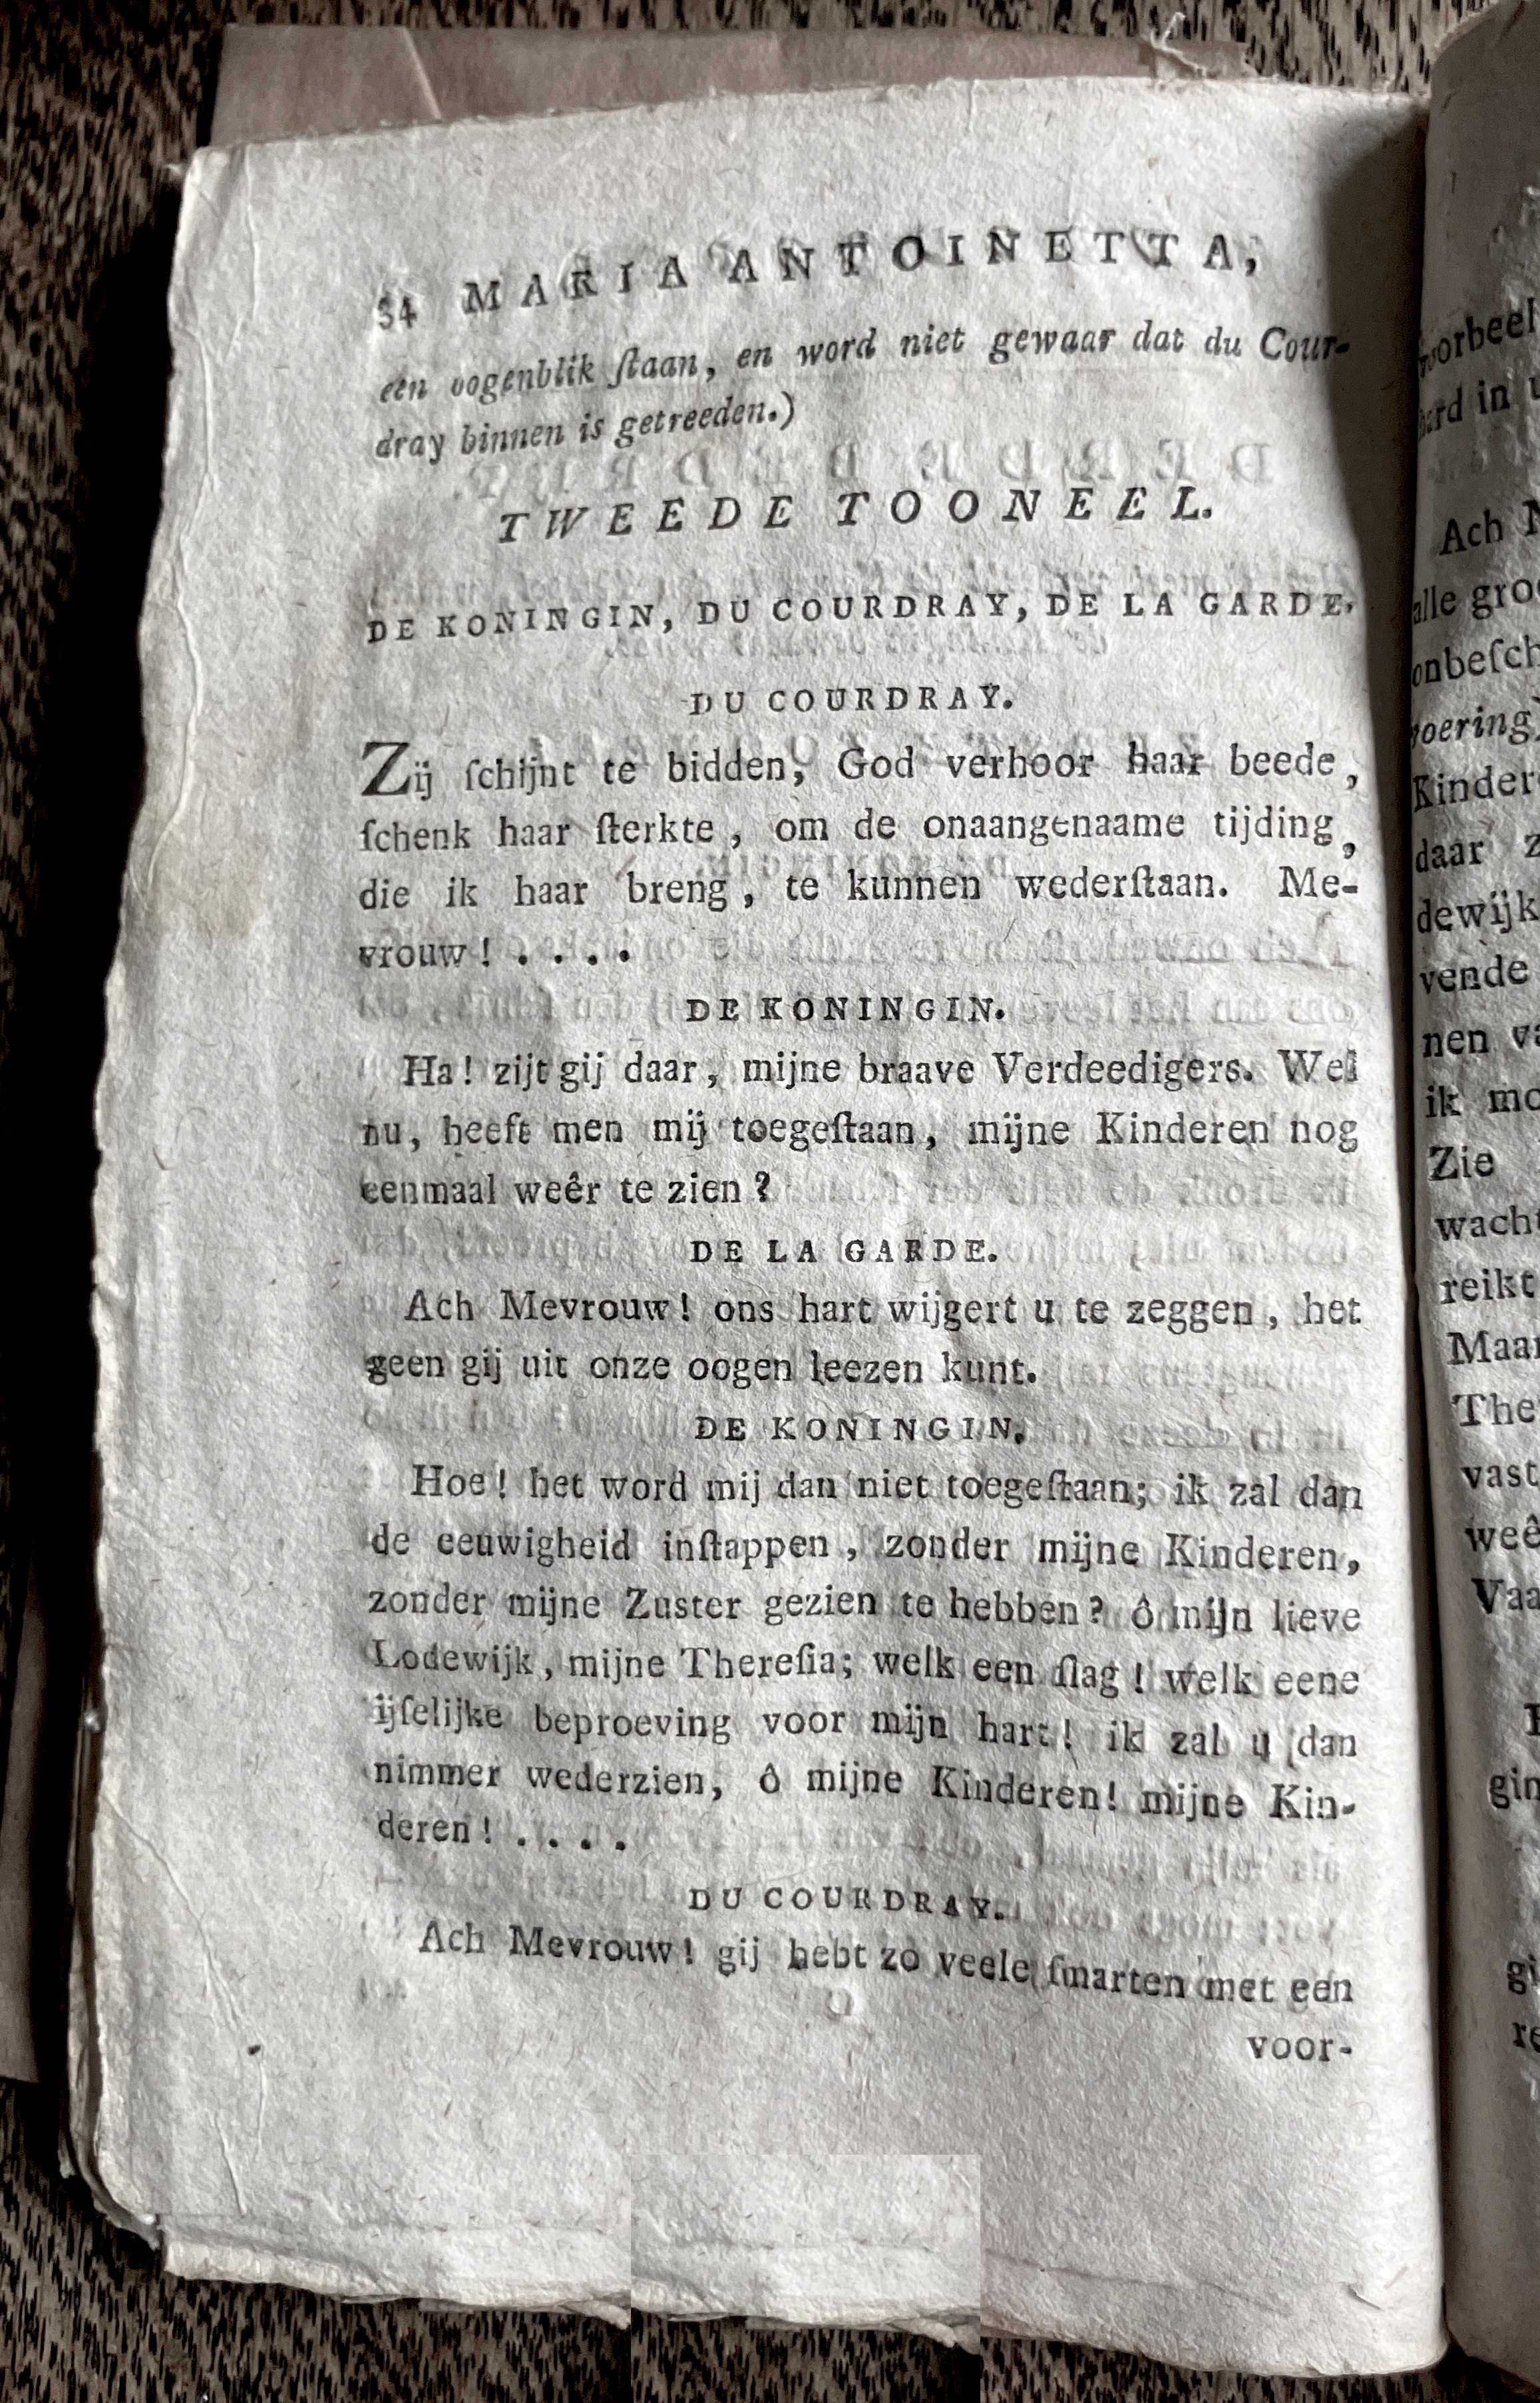 34 MARIA ANTOINETTA,
een oogenblik ſtaan, en word niet gewaar dat du Cour-
dray binnen is getreeden.)
TWEEDE TOONEEL.
DE KONINGIN, DU COURDRAY, DE LA GARDE.
DU COURDRAY.
Zij ſchijnt te bidden, God verhoor haar beede,
ſchenk haar ſterkte, om de onaangenaame tijding,
die ik haar breng, te kunnen wederſtaan. Me-
vrouw! . . . .
DE KONINGIN.
Ha! zijt gij daar, mijne braave Verdeedigers. Wel
nu, heeft men mij toegeſtaan, mijne Kinderen nog
eenmaal weêr te zien?
DE LA GARDE.
Ach Mevrouw! ons hart wijgert u te zeggen, het
geen gij uit onze oogen leezen kunt.
DE KONINGIN.
Hoe! het word mij dan niet toegeſtaan; ik zal dan
de eeuwigheid inſtappen, zonder mijne Kinderen,
zonder mijne Zuster gezien te hebben? ô mijn lieve
Lodewijk, mijne Thereſia; welk een ſlag! welk eene
ijſelijke beproeving voor mijn hart! ik zal u dan
nimmer wederzien, ô mijne Kinderen! mijne Kin-
deren! . . . .
DU COURDRAY.
Ach Mevrouw! gij hebt zo veele ſmarten met een
voor-
Ach
alle
Kinder
daar
dewijk
vende
nen
ik
Zie
wacht
reikt
Maar
vast
weê